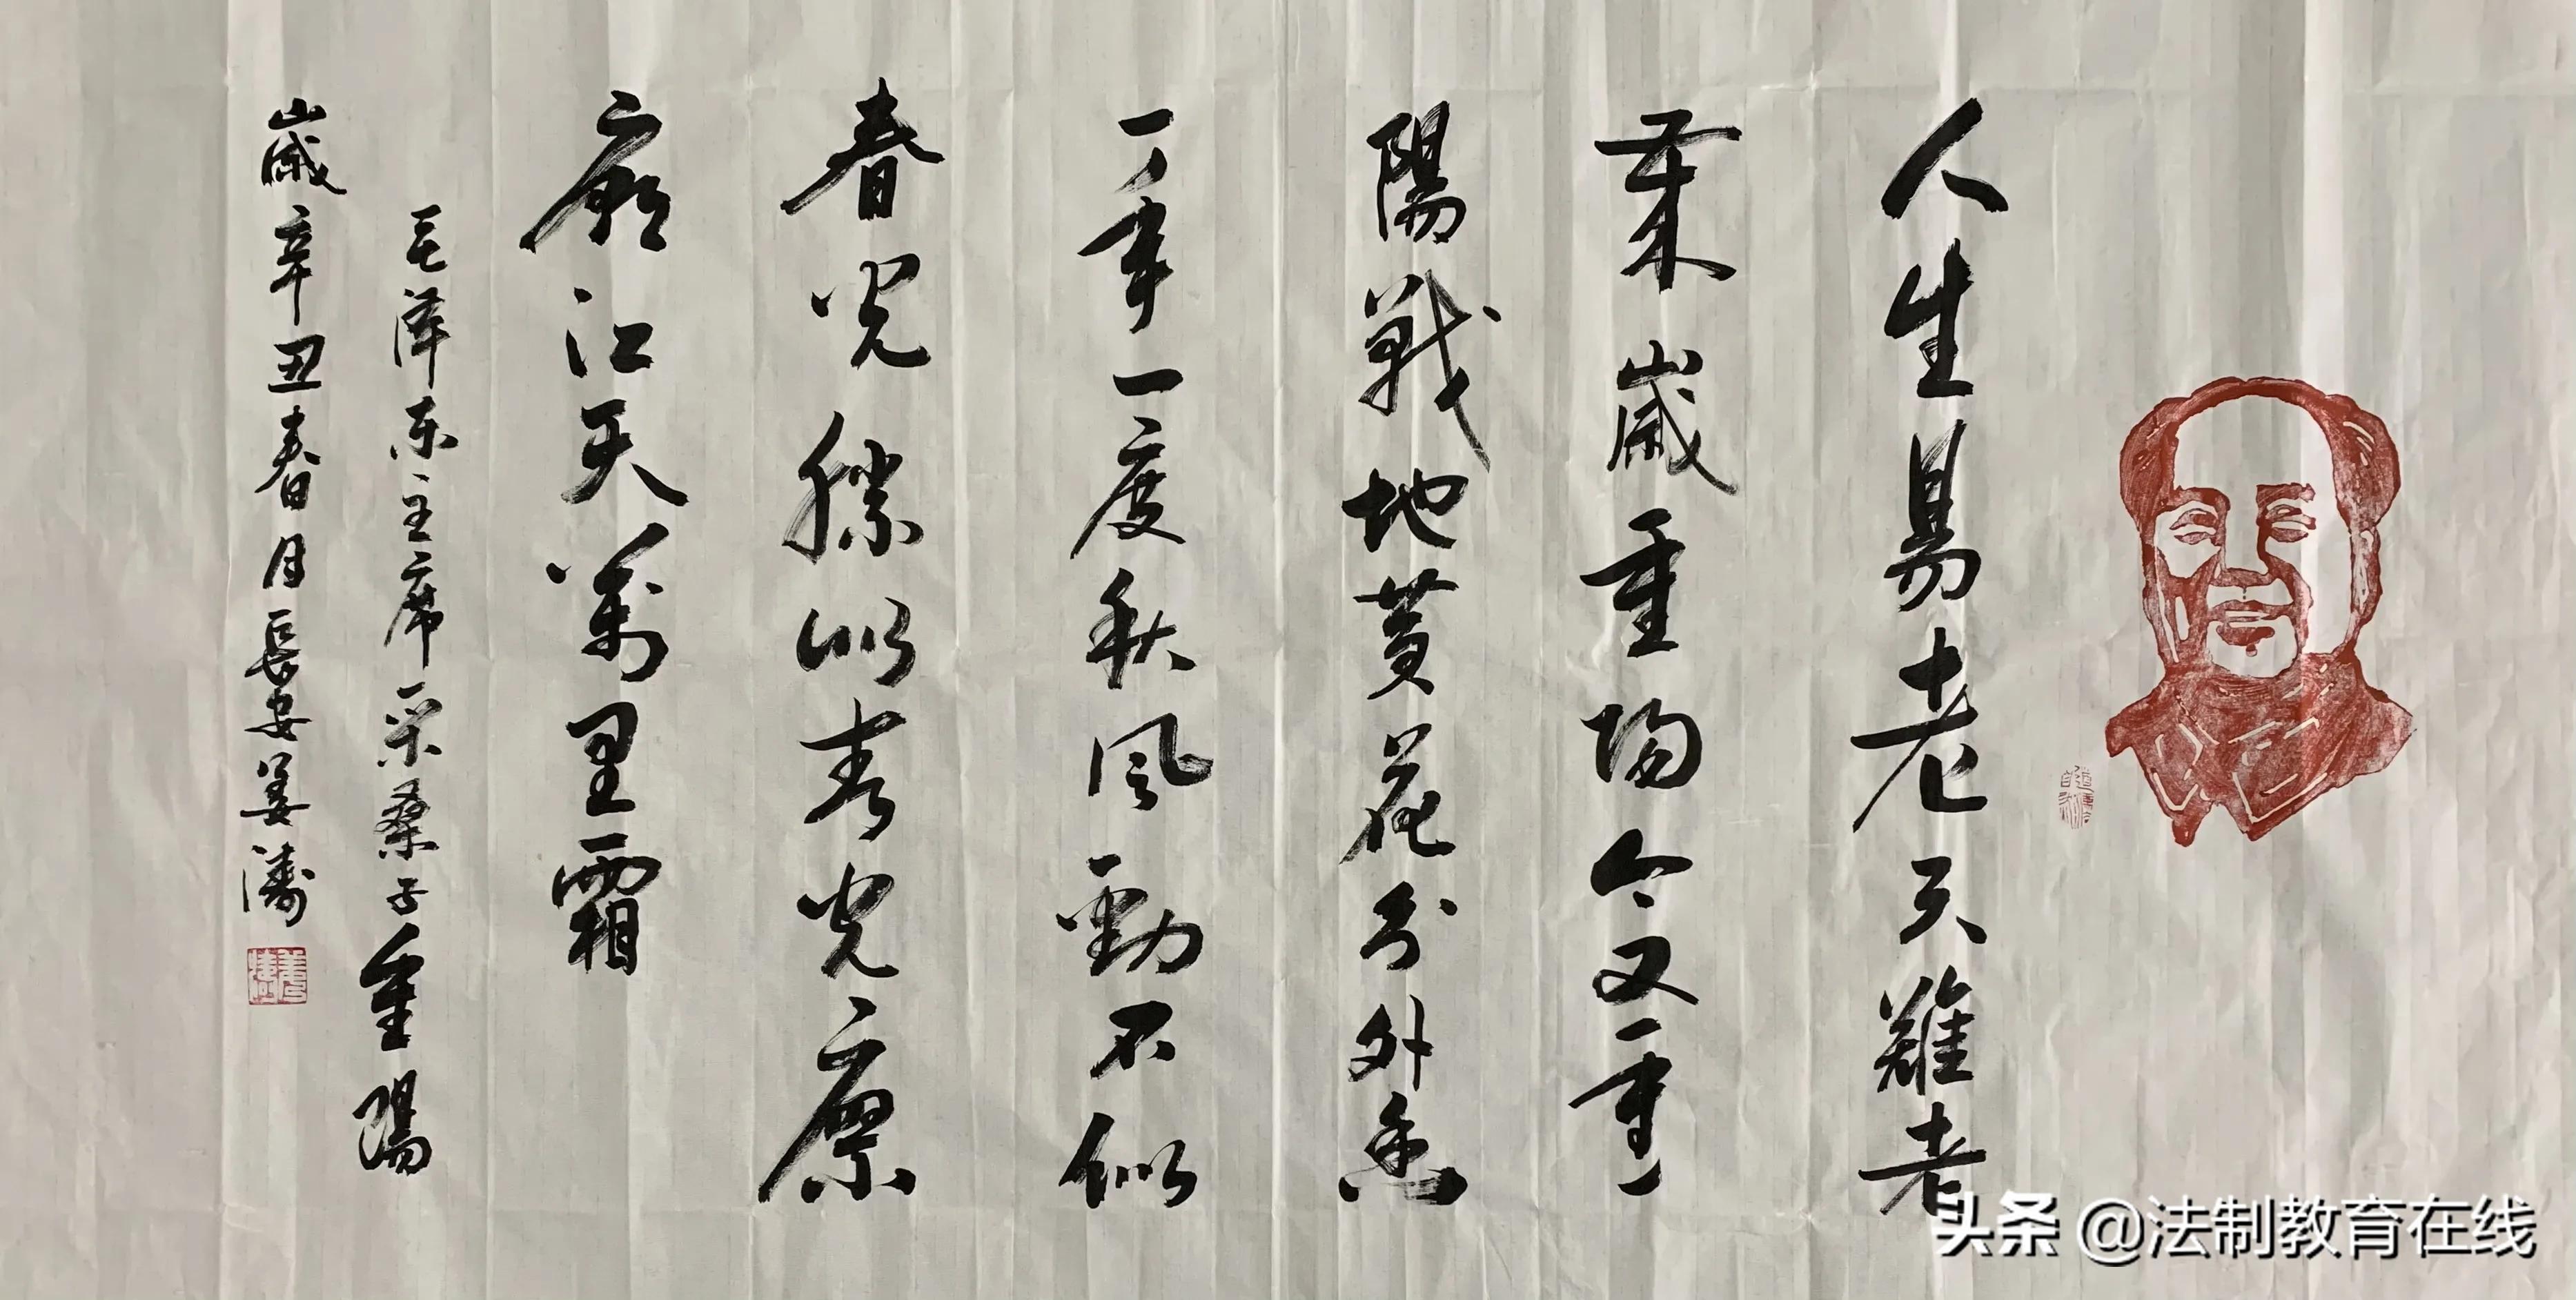 人生易老天難老
葉歲重陽今又重
陽戰地黃花分外香
一年一度秋風勁不似
春光勝似春光寥
廓江天萬里霜
毛澤东主席采桑子重陽
歲辛丑春月長安姜濤
头条 @法制教育在线